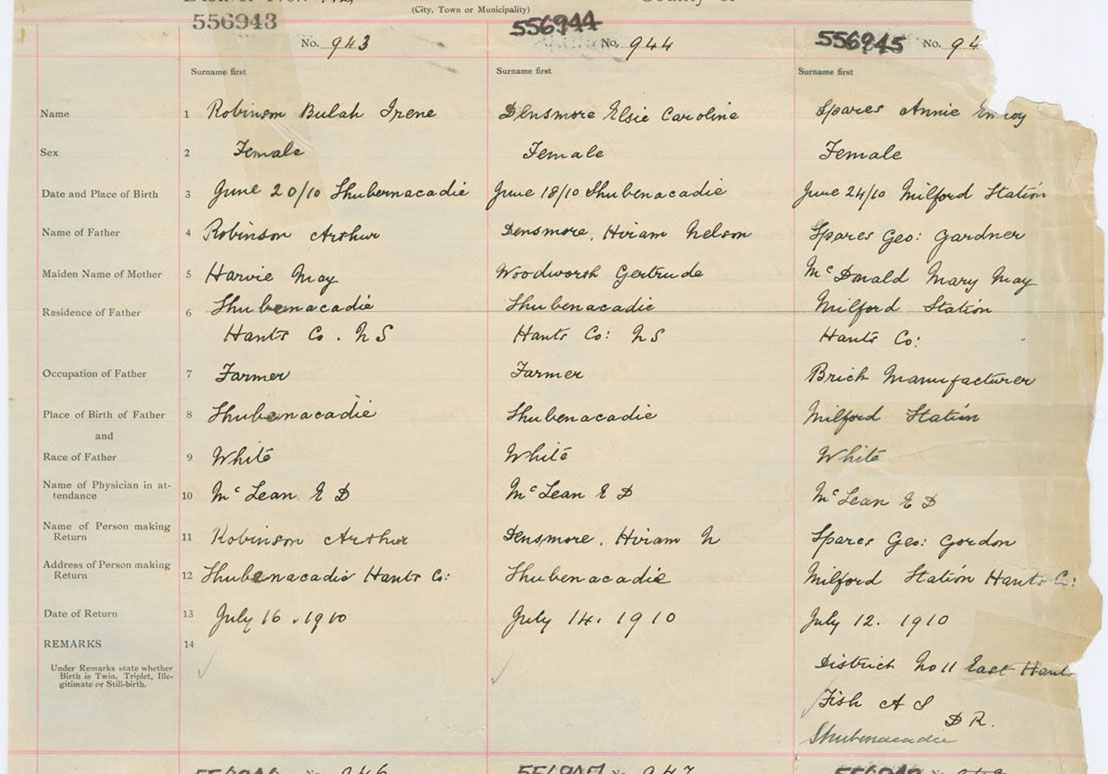 (City, Town or Municipality)
556943 556944 556945
No. 943 No. 944 No. 94
Surname first Surname first Surname first
Name 1 Robinson Bulah Irene Densmore Elsie Caroline Spares Annie
Sex 2 Female Female Female
Date and Place of Birth 3 June 20/10 Shubernacadie June 18/10 Shubenacadie June 24/10 Milford Station
Name of Father 4 Robinson Arthur Densmore, Hiram Nelson Spares Geo: Gardner
Maiden Name of Mother 5 Harvie May Woodworth Gertrude McDonald Mary May
Residence of Father 6 Shubenacadie Shubenacadie Milford Station
Hants Co. N S Hants Co: N S Hants Co:
Occupation of Father 7 Farmer Farmer Brick Manufacturer
Place of Birth of Father 8 Shubenacadie Shubenacadie Milford Station
and
Race of Father 9 White White White
Name of Physician in at-
tendance 10 McLean E D McLean E D McLean E D
Name of Person making
Return 11 Robinson Arthur Densmore, Hiram N Spares Geo: Gordon
Address of Person making
Return 12 Shubenacadie Hants Co: Shubenacadie Milford Station Hants Co:
Date of Return 13 July 16, 1910 July 14. 1910 July 12. 1910
REMARKS 14
Under Remarks state whether
Birth is Twin, Triplet, Ille-
gitimate or Still-birth.
District No 11 East Hants
Fish A S
D R.
Shubenacadie
No 946 No 947